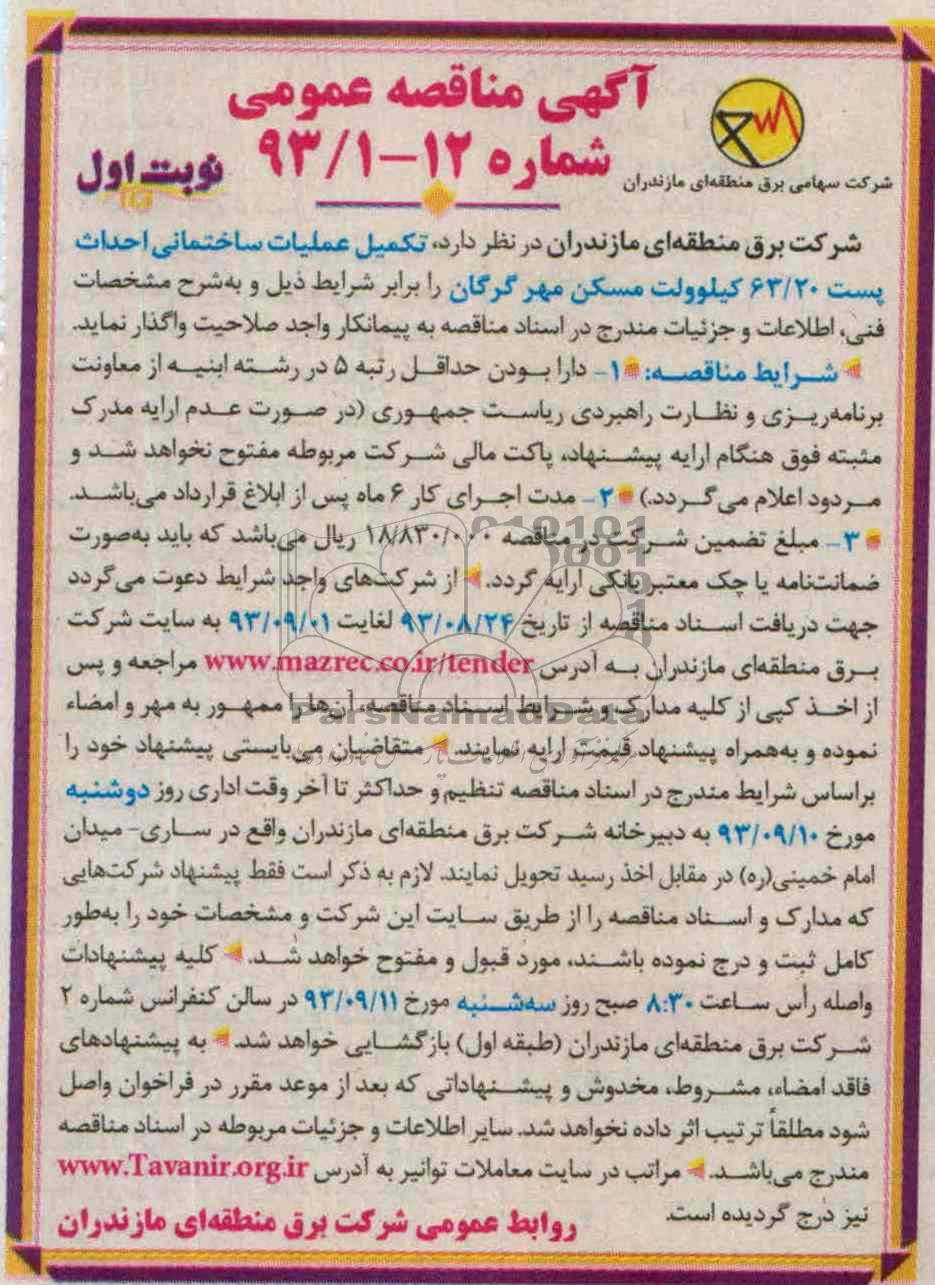 آگهی مناقصه عمومی
شماره ۱۲-۹۳/۱
نوبت اول
شرکت سهامی برق منطقه‌ای مازندران
شرکت برق منطقه‌ای مازندران در نظر دارد، تکمیل عملیات ساختمانی احداث
پست ۶۳/۲۰ کیلوولت مسکن مهر گرگان را برابر شرایط ذیل و به‌شرح مشخصات
فنی، اطلاعات و جزئیات مندرج در اسناد مناقصه به پیمانکار واجد صلاحیت واگذار نماید.
شرایط مناقصه: ۱- دارا بودن حداقل رتبه ۵ در رشته ابنیه از معاونت
برنامه‌ریزی و نظارت راهبردی ریاست جمهوری (در صورت عدم ارایه مدرک
مثبته فوق هنگام ارایه پیشنهاد، پاکت مالی شرکت مربوطه مفتوح نخواهد شد و
مردود اعلام می‌گردد.) ۲- مدت اجرای کار ۶ ماه پس از ابلاغ قرارداد می‌باشد.
۳- مبلغ تضمین شرکت در مناقصه ۱۸/۸۳۰/۰۰۰ ریال می‌باشد که باید به‌صورت
ضمانت‌نامه یا چک معتبر بانکی ارایه گردد. از شرکت‌های واجد شرایط دعوت می‌گردد
جهت دریافت اسناد مناقصه از تاریخ ۹۳/۰۸/۲۴ لغایت ۹۳/۰۹/۰۱ به سایت شرکت
برق منطقه‌ای مازندران به آدرس www.mazrec.co.ir/tender مراجعه و پس
از اخذ کپی از کلیه مدارک و شرایط اسناد مناقصه، آن‌ها را ممهور به مهر و امضاء
نموده و به‌همراه پیشنهاد قیمت ارایه نمایند. متقاضیان می‌بایستی پیشنهاد خود را
براساس شرایط مندرج در اسناد مناقصه تنظیم و حداکثر تا آخر وقت اداری روز دوشنبه
مورخ ۹۳/۰۹/۱۰ به دبیرخانه شرکت برق منطقه‌ای مازندران واقع در ساری- میدان
امام خمینی(ره) در مقابل اخذ رسید تحویل نمایند. لازم به ذکر است فقط پیشنهاد شرکت‌هایی
که مدارک و اسناد مناقصه را از طریق سایت این شرکت و مشخصات خود را به‌طور
کامل ثبت و درج نموده باشند، مورد قبول و مفتوح خواهد شد. کلیه پیشنهادات
واصله رأس ساعت ۸:۳۰ صبح روز سه‌شنبه مورخ ۹۳/۰۹/۱۱ در سالن کنفرانس شماره ۲
شرکت برق منطقه‌ای مازندران (طبقه اول) بازگشایی خواهد شد. به پیشنهادهای
فاقد امضاء، مشروط، مخدوش و پیشنهاداتی که بعد از موعد مقرر در فراخوان واصل
شود مطلقاً ترتیب اثر داده نخواهد شد. سایر اطلاعات و جزئیات مربوطه در اسناد مناقصه
مندرج می‌باشد. مراتب در سایت معاملات توانیر به آدرس www.Tavanir.org.ir
نیز درج گردیده است.
روابط عمومی شرکت برق منطقه‌ای مازندران
ParsNamadData